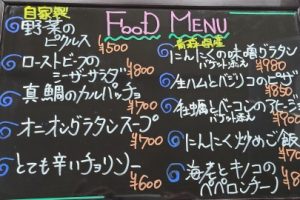 FOOD MENU
自家製
野菜の
ピクルス
¥500
ローストビーフの
シーザーサラダ
¥800
真鯛のカルパッチョ
¥700
オニオングラタンスープ
¥700
とても辛いチョリソー
¥600
青森県産
にんにくの味噌グラタン
バケット添え
¥980
生ハムとバジリコのピザ
¥850
牡蠣とベーコンのアヒージョ
バケット添え
¥900
にんにく炒めご飯
海老とキノコの
ペペロンチーノ